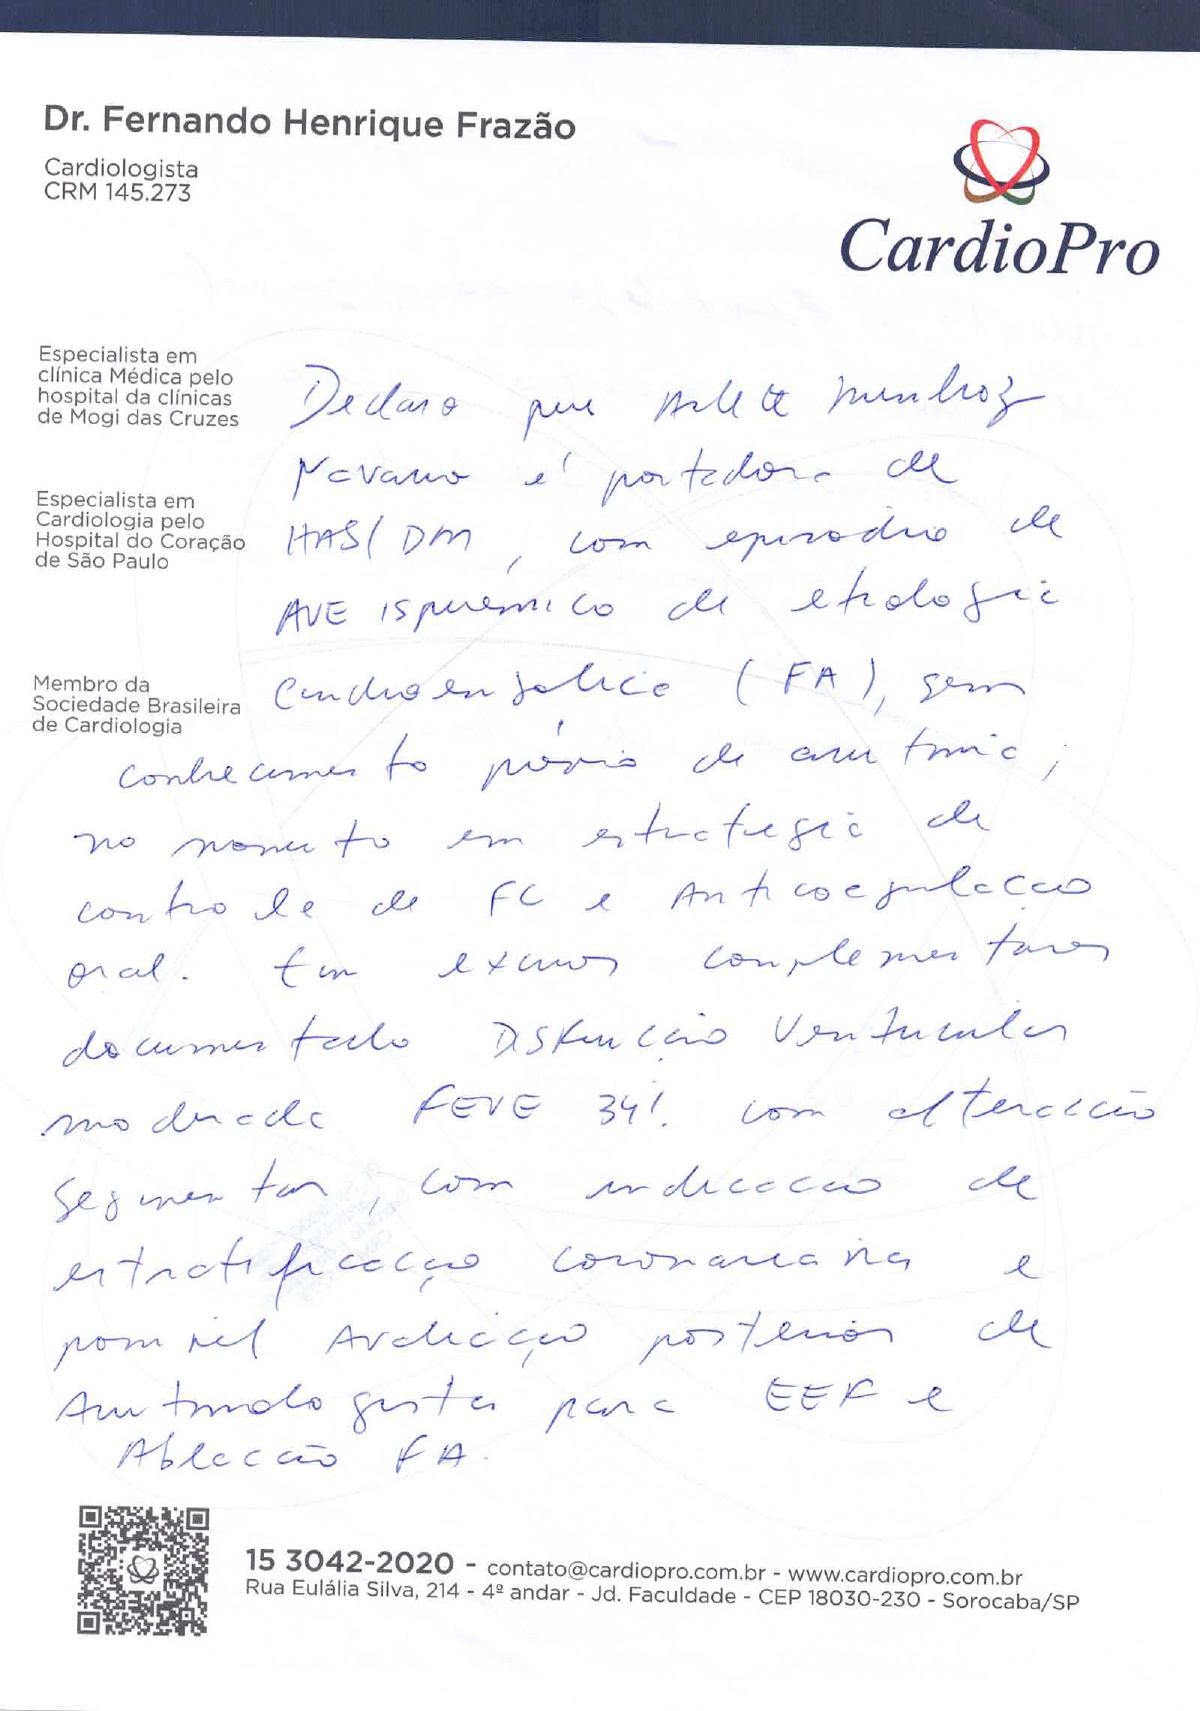 Dr. Fernando Henrique Frazão
Cardiologista
CRM 145.273
CardioPro
Especialista em
clínica Médica pelo
hospital da clínicas
de Mogi das Cruzes
Especialista em
Cardiologia pelo
Hospital do Coração
de São Paulo
Membro da
Sociedade Brasileira
de Cardiologia
Declaro que Arlete Munhoz
Navarro é portadora de
HAS/DM, com episódio de
AVE isquêmico de etiologia
Cardioembólica (FA), sem
conhecimento prévio de arritmia,
no momento em estratégia de
controle de FC e Anticoagulação
oral. Em exames complementares
documentado Disfunção Ventricular
moderada FEVE 34% com alteração
segmentar, com indicação de
estratificação coronariana e
possível Avaliação posterior de
Arritmologista para EEF e
Ablação FA.
15 3042-2020 - contato@cardiopro.com.br - www.cardiopro.com.br
Rua Eulália Silva, 214 - 4º andar - Jd. Faculdade - CEP 18030-230 - Sorocaba/SP